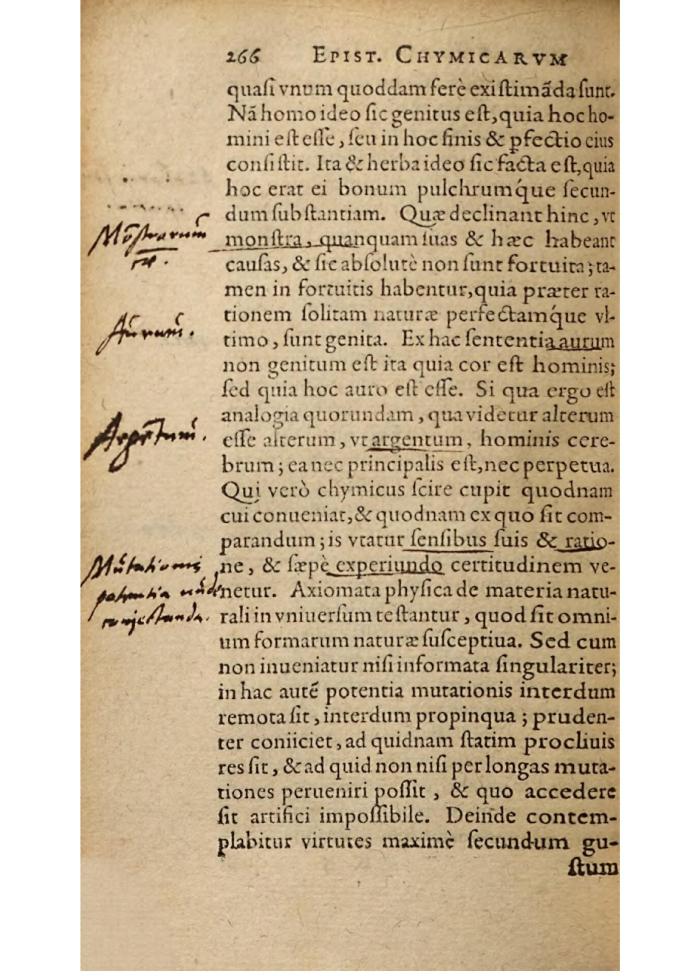 266 EPIST. CHYMICARVM
quasi vnum quoddam ferè existimãda sunt.
Nã homo ideo sic genitus est, quia hoc ho-
mini est esse, seu in hoc finis & pfectio eius
consistit. Ita & herba ideo sic facta est, quia
hoc erat ei bonum pulchrumq́ue secun-
dum substantiam. Quæ declinant hinc, vt
monstra, quanquam suas & hæc habeant
causas, & sic absolutè non sunt fortuita; ta-
men in fortuitis habentur, quia præter ra-
tionem solitam naturæ perfectamq́ue vl-
timo, sunt genita. Ex hac sententia aurum
non genitum est ita quia cor est hominis;
sed quia hoc auro est esse. Si qua ergo est
analogia quorundam, qua videtur alterum
esse alterum, vt argentum, hominis cere-
brum; ea nec principalis est, nec perpetua.
Qui verò chymicus scire cupit quodnam
cui conueniat, & quodnam ex quo sit com-
parandum; is vtatur sensibus suis & ratio-
ne, & sæpè experiundo certitudinem ve-
netur. Axiomata physica de materia natu-
rali in vniuersum testantur, quod sit omni-
um formarum naturæ susceptiua. Sed cum
non inueniatur nisi informata singulariter;
in hac autẽ potentia mutationis interdum
remota sit, interdum propinqua; pruden-
ter coniiciet, ad quidnam statim procliuis
res sit, & ad quid non nisi per longas muta-
tiones perueniri possit, & quo accedere
sit artifici impossibile. Deinde contem-
plabitur virtutes maximè secundum gu-
stum
Aurum.
Mutationis
potentia